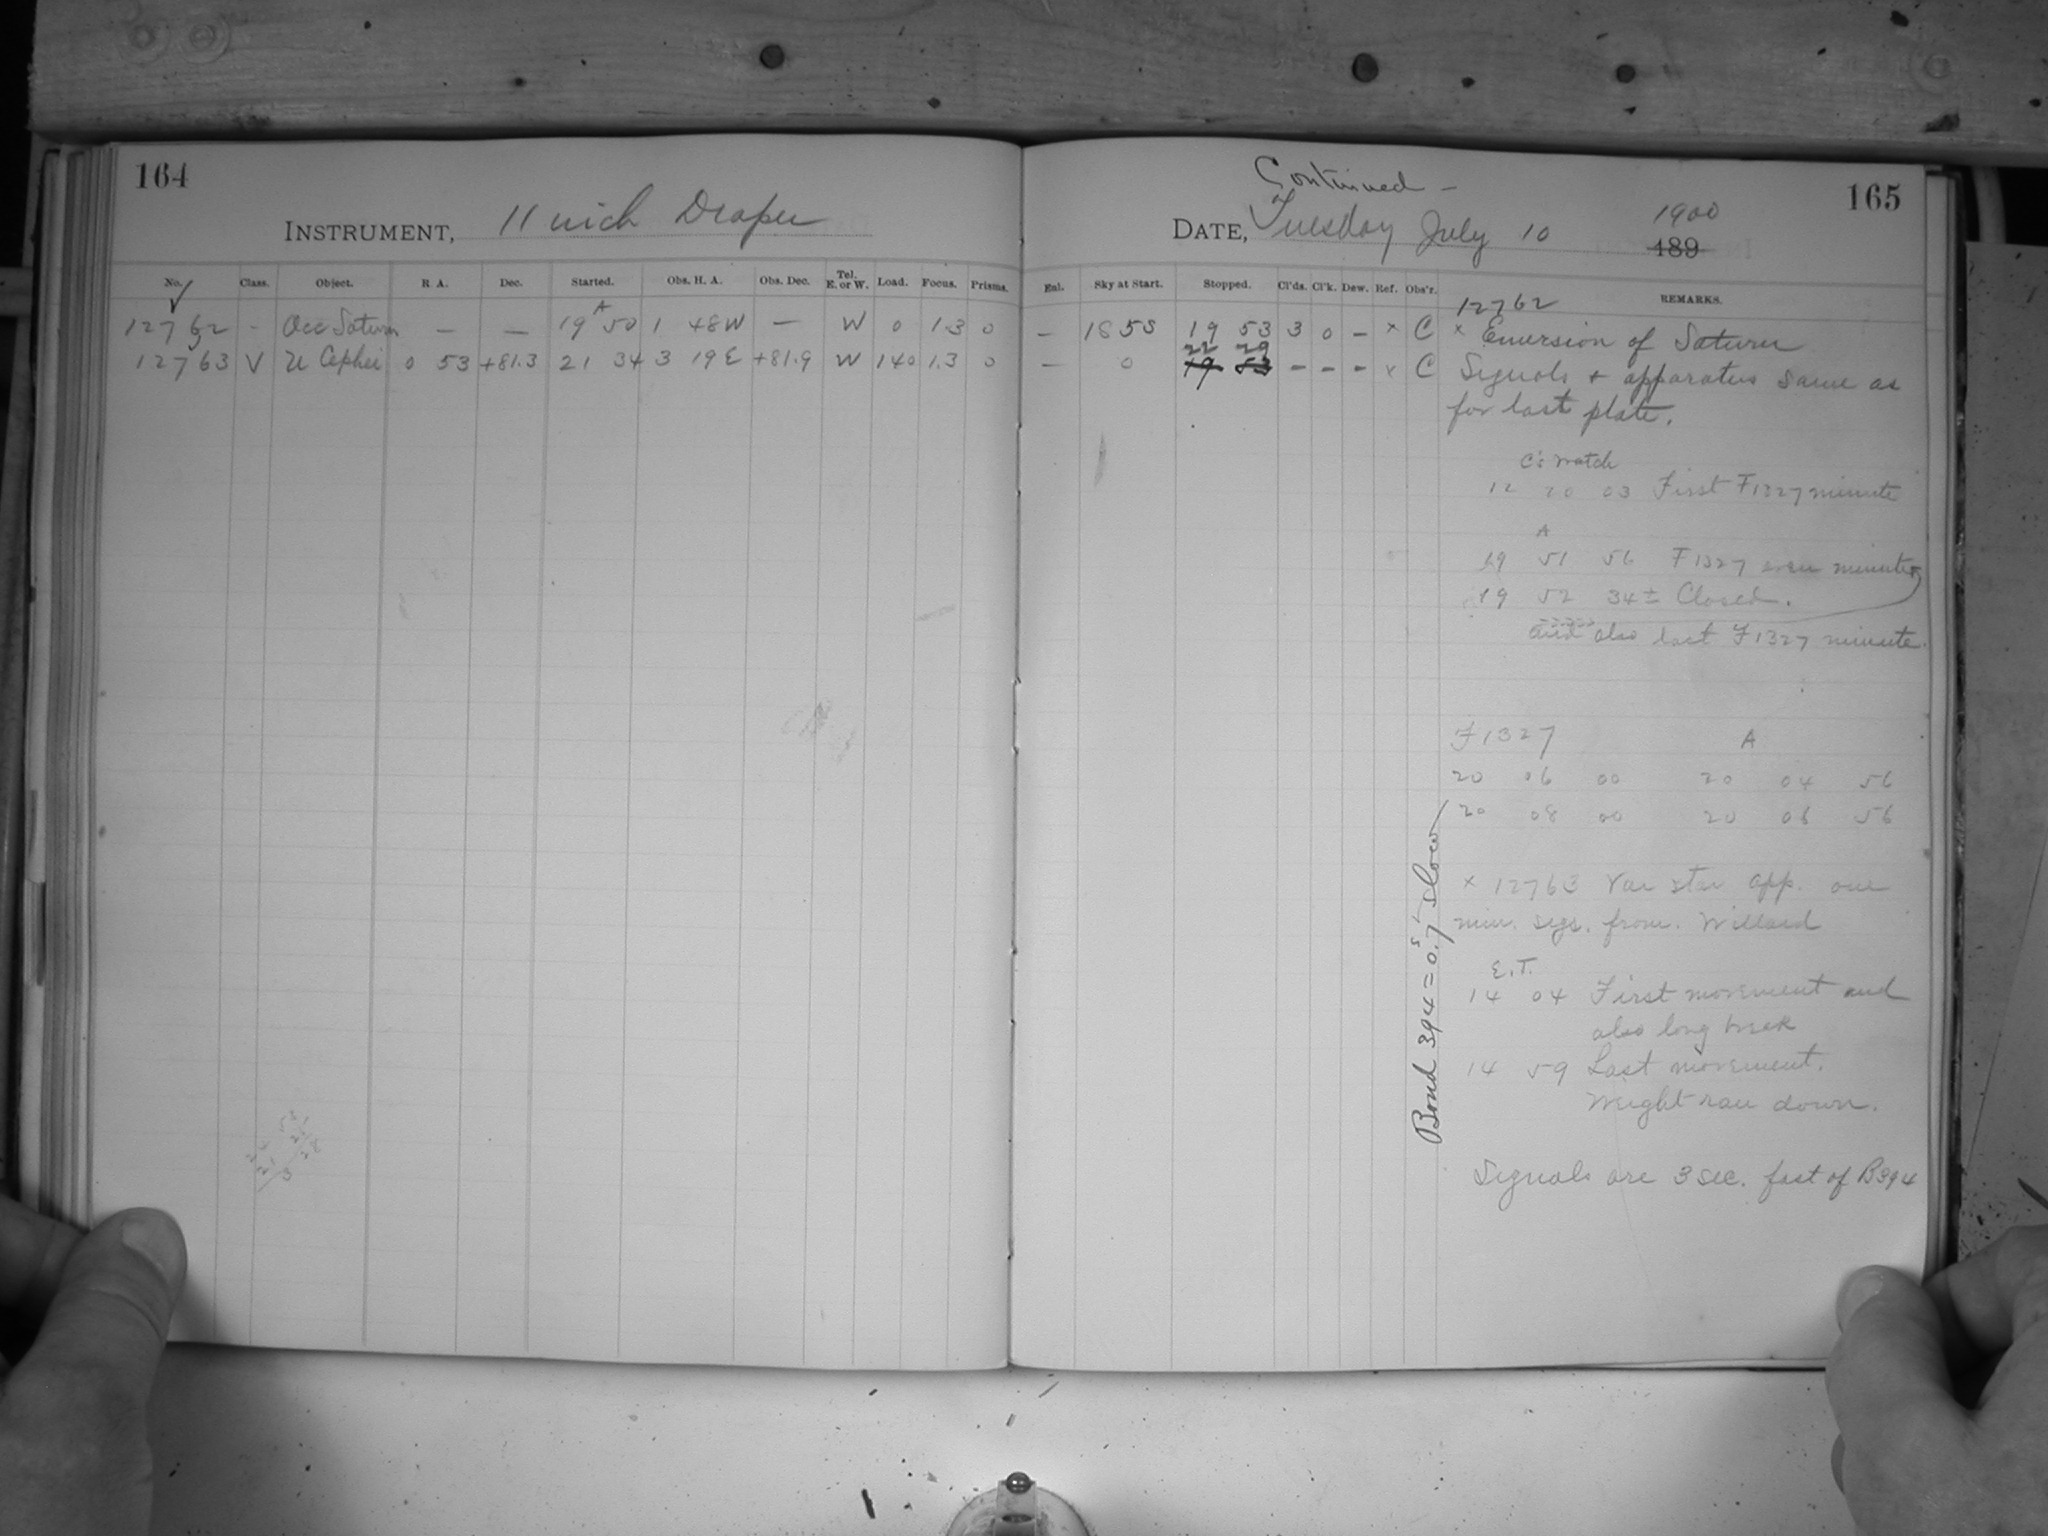 164
INSTRUMENT, 11 inch Draper
No. Class. Object. R. A. Dec. Started. Obs. H. A. Obs. Dec. Tel. E. or W. Load. Focus. Prisms.
A
12762 - Occ Saturn — — 19 50 1 48W — W 0 1.3 0
12763 V U Cephei 0 53 +81.3 21 34 3 19E +81.9 W 140 1.3 0
Continued -
165
DATE, Tuesday July 10 1900
189
Enl. Sky at Start. Stopped. Cl'ds. Cl'k. Dew. Ref. Obs'r. REMARKS.
12762
— 1855 19 53 3 0 - x C x Emersion of Saturn
22 29
— 0 19 53 - - - x C Signals + apparatus same as
for last plate.
C's watch
12 20 03 First F1327 minute
A
19 51 56 F1327 even minute
19 52 34± Closed.
and also last F1327 minute.
F1327 A
20 06 00 20 04 56
20 08 00 20 06 56
x 12763 Var star app. one
min. segs. from. Willard
E.T.
14 04 First movement and
also long break
14 59 Last movement.
Weight ran down.
Bond 394 = 0.7s slow
Signals are 3 sec. fast of B394